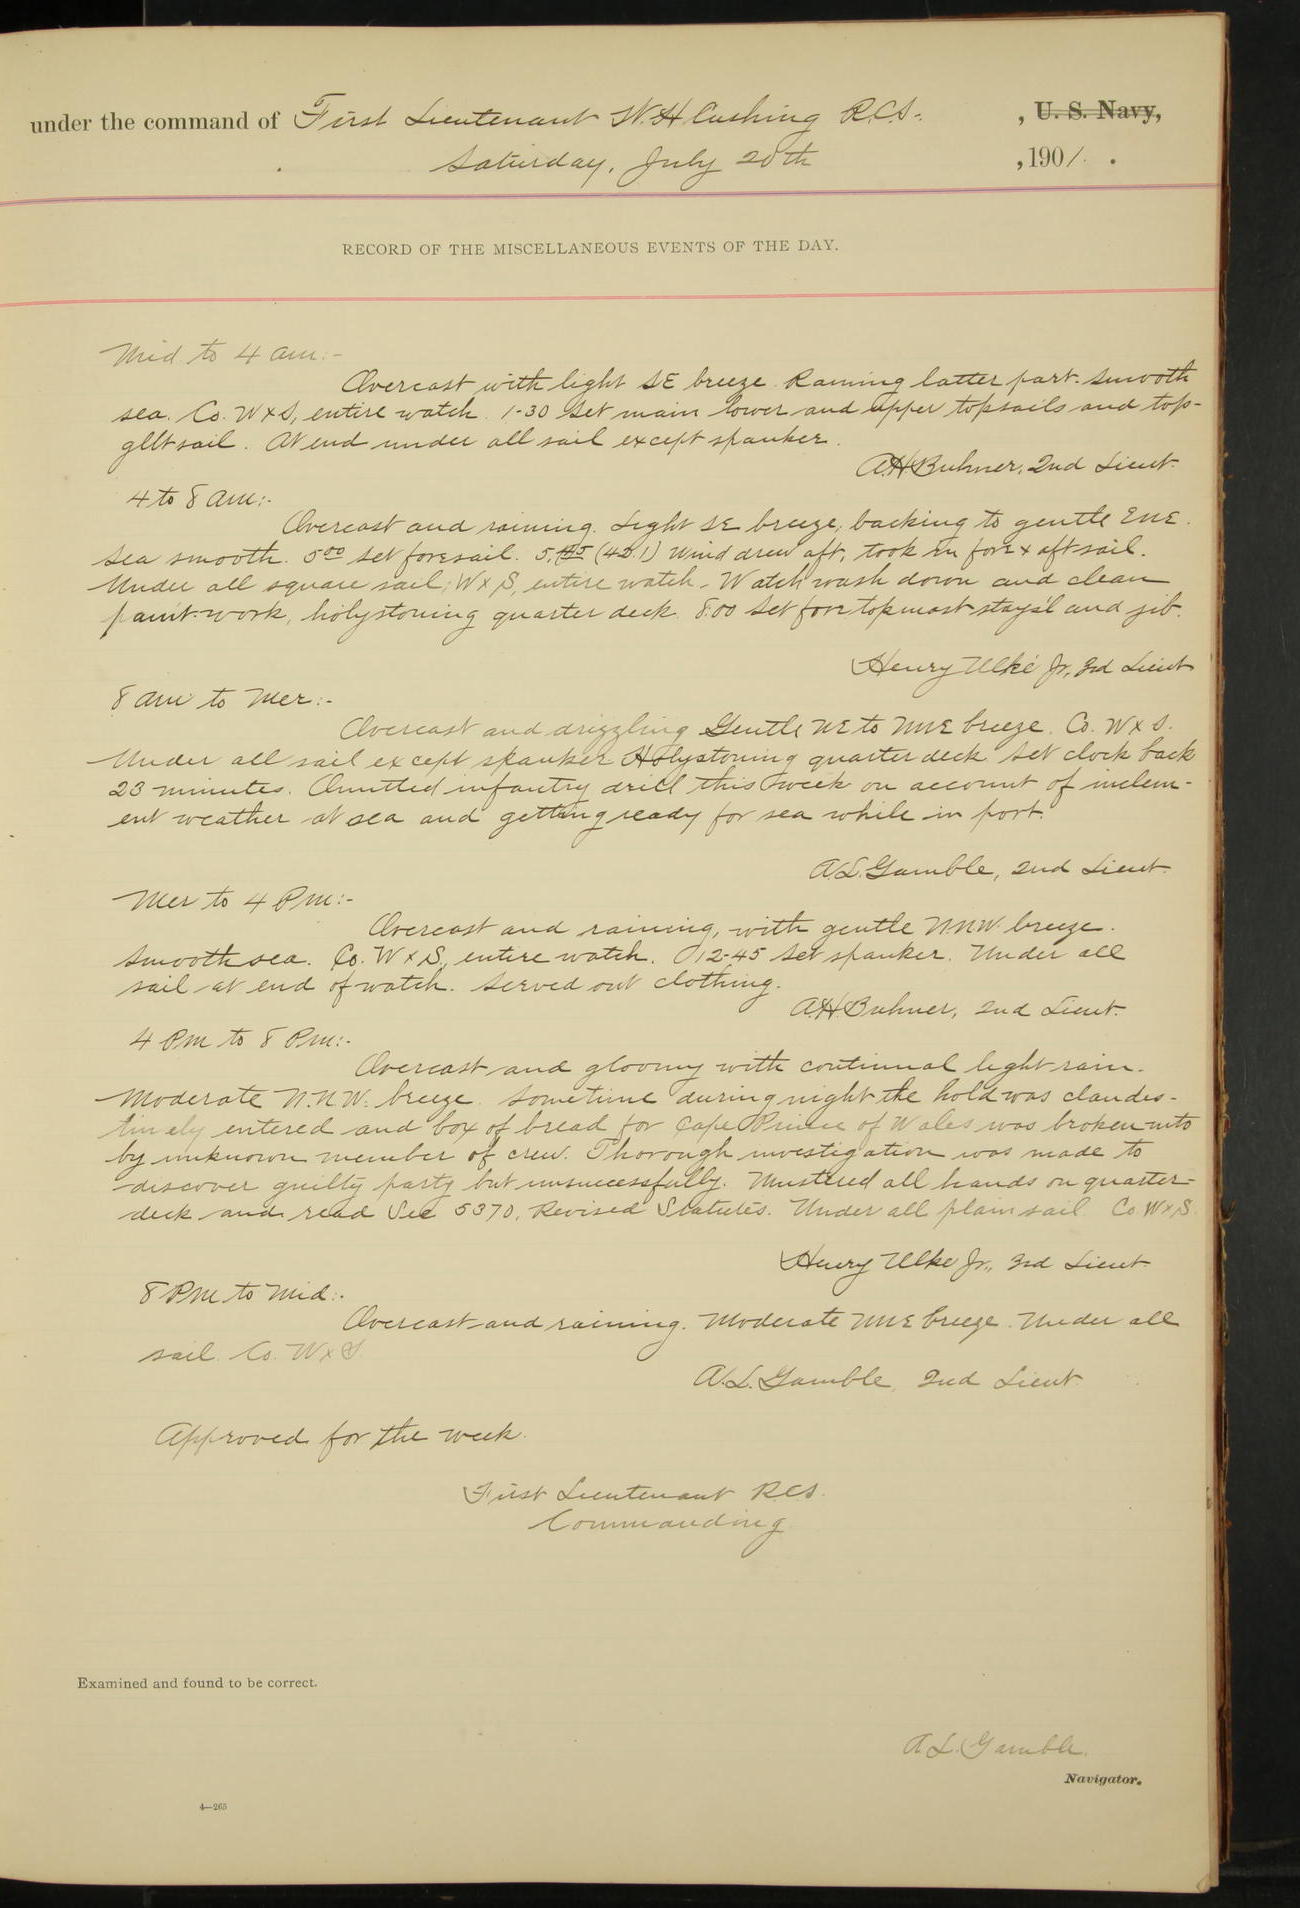 under the command of First Lieutenant W. H. Cushing R.C.S. , U. S. Navy,
Saturday, July 20th , 1901.
RECORD OF THE MISCELLANEOUS EVENTS OF THE DAY.
Mid to 4 am:-
Overcast with light SE breeze. Raining latter part. Smooth
sea. Co. W x S, entire watch. 1-30 Set main lower and upper topsails and top-
gllt sail. At end under all sail except spanker.
A.H. Buhner, 2nd Lieut.
4 to 8 am:-
Overcast and raining. Light SE breeze, backing to gentle ENE.
Sea smooth. 5 00 set foresail. 5. Wind drew aft, took in fore x aft sail.
Under all square sail; W x S, entire watch. Watch wash down and clean
paint-work, holystoning quarter deck. 8.00 Set fore topmast stays'l and jib.
Henry Ulke Jr., 3rd Lieut
8 am to Mer:-
Overcast and drizzling Gentle NE to NNE breeze. Co. W x S.
Under all sail except spanker Holystoning quarter deck Set clock back
23 minutes. Omitted infantry drill this week on account of inclem-
ent weather at sea and getting ready for sea while in port.
A.L. Gamble, 2nd Lieut.
Mer to 4 Pm:-
Overcast and raining, with gentle N.N.W. breeze.
Smooth sea. Co. W x S, entire watch. 12-45 Set spanker. Under all
sail at end of watch. Served out clothing.
A.H. Buhner, 2nd Lieut.
4 Pm to 8 Pm:-
Overcast and gloomy with continual light rain.
Moderate N.N.W. breeze. Sometime during night the hold was clandes-
tinely entered and box of bread for Cape Prince of Wales was broken into
by unknown member of crew. Thorough investigation was made to
discover guilty party but unsuccessfully. Mustered all hands on quarter-
deck and read Sec 5370, Revised Statutes. Under all plain sail Co. W x S.
Henry Ulke Jr., 3rd Lieut
8 Pm to Mid:-
Overcast and raining. Moderate NNE breeze. Under all
sail. Co. W x S
A.L. Gamble, 2nd Lieut.
Approved for the week.
First Lieutenant RCS.
Commanding
Examined and found to be correct.
A L. Gamble.
Navigator.
4—265